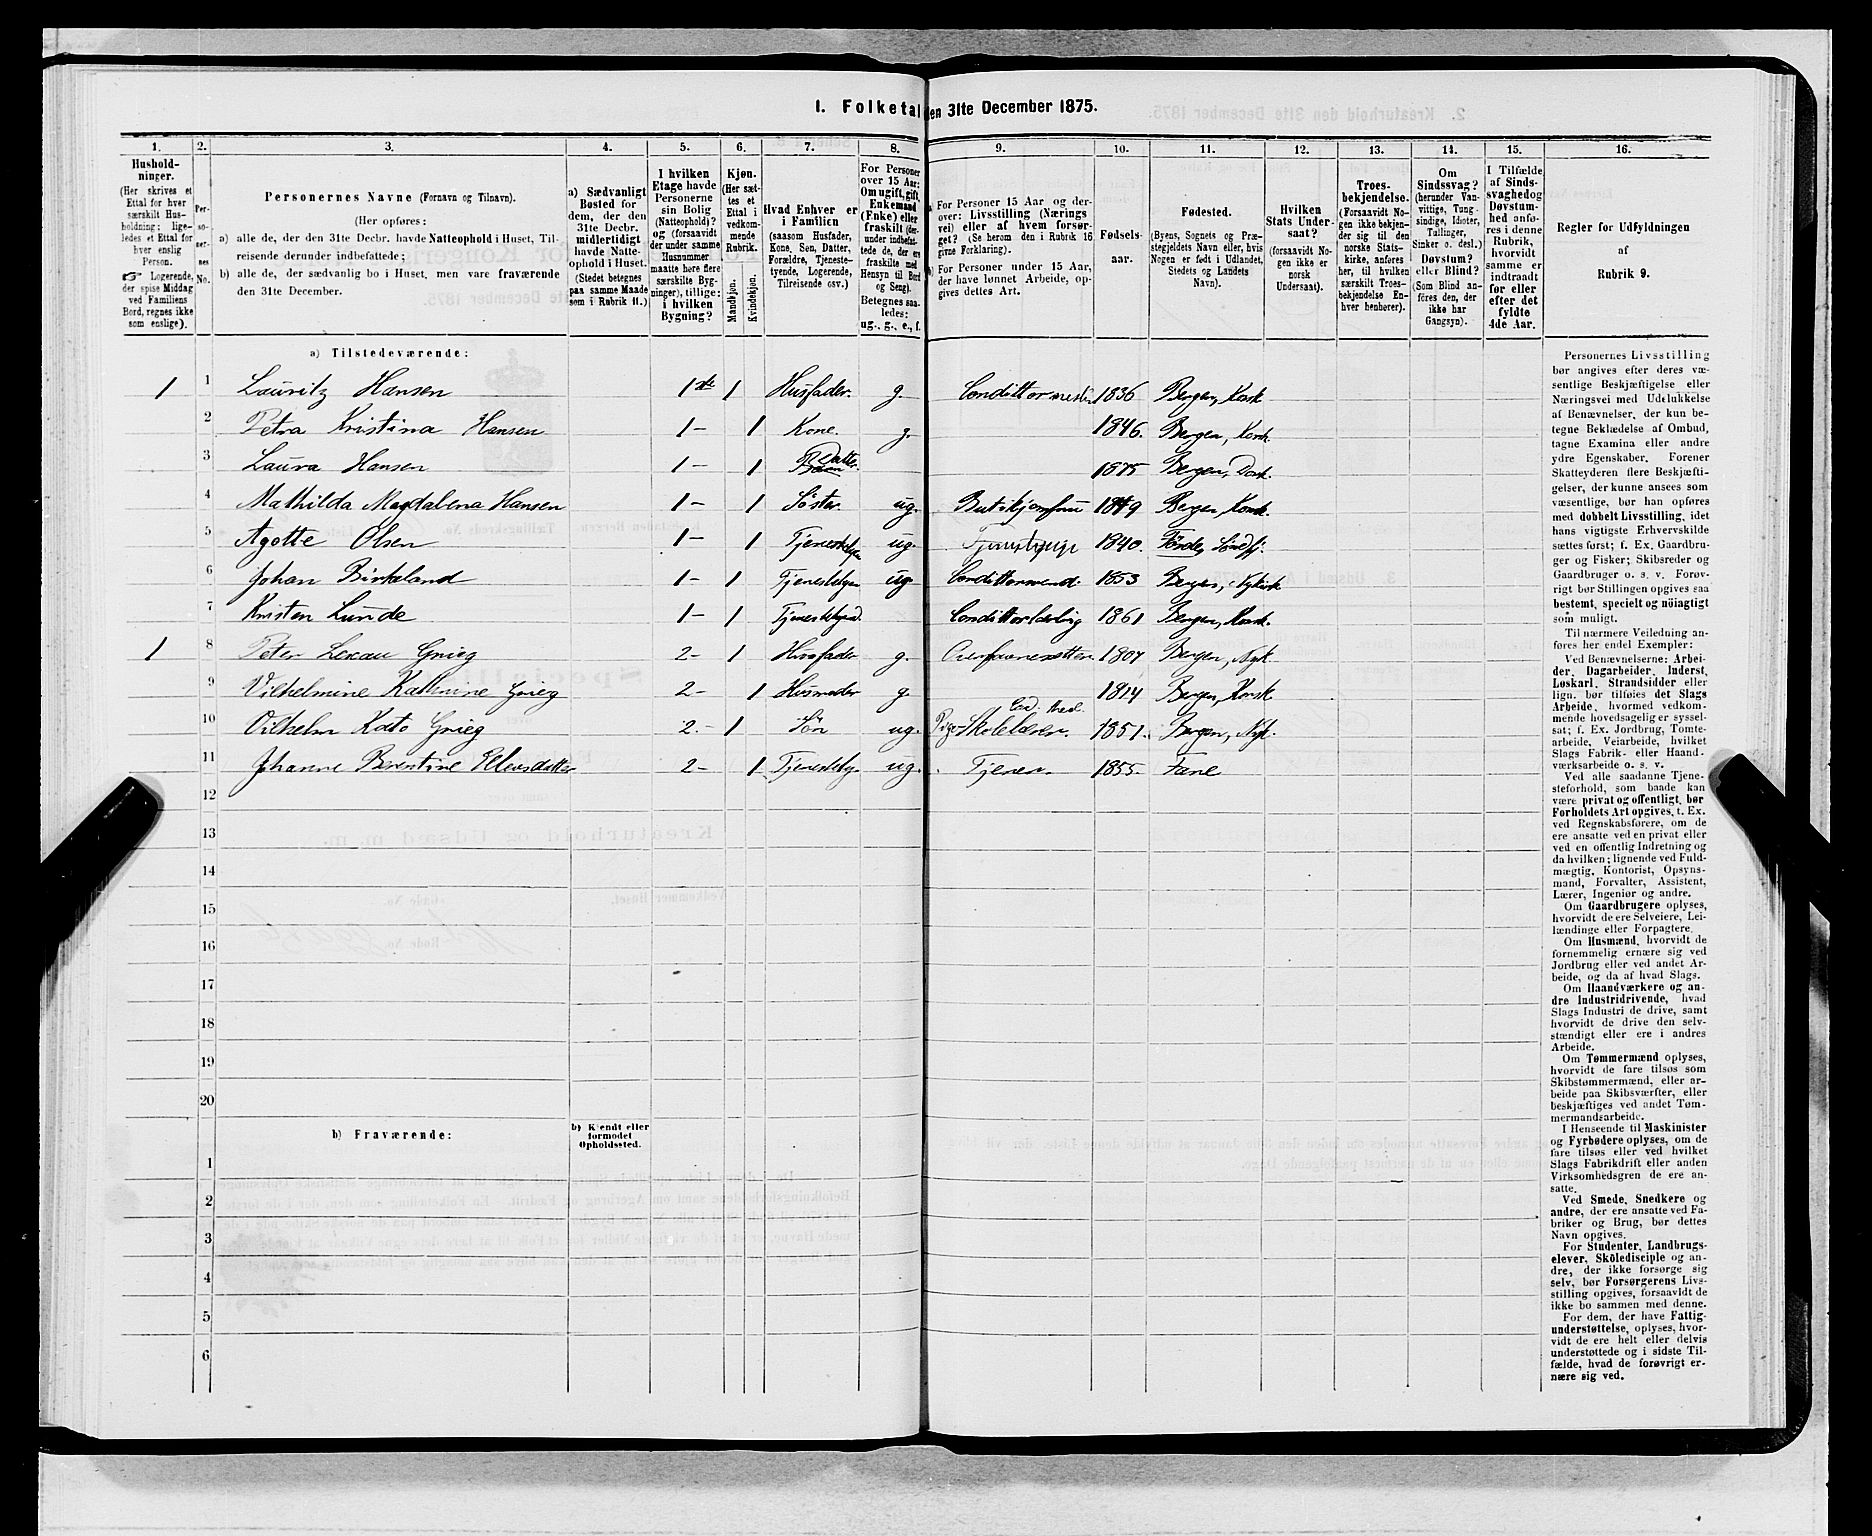 1. Folketal den 31te December 1875.
1. 2. 3. 4. 5. 6. 7. 8. 9. 10. 11. 12. 13. 14. 15. 16.
Hushold-
ninger.
(Her skrives et
Ettal for hver
særskilt Hus-
holdning; lige-
ledes et Ettal for
hver enslig
Person.
☞ Logerende,
der spise Middag
ved Familiens
Bord, regnes ikke
som enslige).
Per-
so-
ner-
nes
No.
Personernes Navne (Fornavn og Tilnavn).
(Her opføres:
a) alle de, der den 31te Decbr. havde Natteophold i Huset, Til-
reisende derunder indbefattede;
b) alle de, der sædvanlig bo i Huset, men vare fraværende
den 31te December.
a) Sædvanligt
Bosted for
dem, der den
31te Decbr.
midlertidigt
havde Natte-
ophold i Huset.
(Stedet betegnes
paa samme Maade
som i Rubrik 11.)
I hvilken
Etage havde
Personerne
sin Bolig
(Natteophold)?
og (forsaavidt
der under samme
Husnummer
maatte here flere
særskilte Byg-
ninger), tillige:
i hvilken
Bygning?
Kjøn.
(Her sæt-
tes et
Ettal i
vedkom-
mende
Rubrik.
Mandkjøn.
Kvindekjøn.
Hvad Enhver er
i Familien
(saasom Husfader,
Kone, Søn, Datter,
Forældre, Tjeneste-
tyende, Logerende,
Tilreisende osv.)
For Personer
over 15 Aar:
Om ugift, gift,
Enkemand
(Enke) eller
fraskilt (der-
under indbefat-
tede de, der ere
fraskilte med
Hensyn til Bord
og Seng).
Betegnes saa-
ledes:
ug., g., e., f.
For Personer 15 Aar og der-
over: Livsstilling (Nærings
vei) eller af hvem forsør-
get? (Se herom den i Rubrik 16
givne Forklaring).
For Personer under 15 Aar,
der have lønnet Arbeide, op-
gives dettes Art.
Fødsels-
aar.
Fødested.
(Byens, Sognets og Præ-
stegjeldets Navn eller, hvis
Nogen er født i Udlandet,
Stedets og Landets
Navn).
Hvilken
Stats Under-
saat?
(forsaavidt No-
gen ikke er
norsk
Undersaat).
Troes-
bekjendelse.
(Forsaavidt No-
gen ikke bekjen-
der sig til den
norske Stats-
kirke, anføres
her, til hvilken
særskilt Troes-
bekjendelse En-
hver henhører).
Om
Sindssvag?
(herunder Van-
vittige, Tung-
sindige, Idioter,
Tullinger,
Sinker o. desl.)
Døvstum?
eller Blind?
(Som Blind an-
føres den, der
ikke har
Gangsyn).
I Tilfælde
af Sinds-
svaghed og
Døvstum-
hed anfø-
res i denne
Rubrik,
hvorvidt
samme er
indtraadt
før eller
efter det
fyldte
4de Aar.
Regler for Udfyldningen
af
Rubrik 9.
a) Tilstedeværende:
1 1 Lauritz Hansen 1ste 1 Husfader. g. Condittormester 1836 Bergen, Korsk
2 Petra Kristina Hansen 1- 1 Kone. g. 1846. Bergen, Korsk.
3 Laura Hansen 1- 1 Barn Datter 1875 Bergen, Domk.
4 Mathilda Magdalena Hansen 1- 1 Søster. ug. Butikjomfru 1849 Bergen, Korsk.
5 Agotte Olsen 1- 1 ug. 1840. Førde, Søndfj.
6 Johan Birkeland 1- 1 ug. Condittorsvend. 1853 Bergen, Nykirk
7 Kristen Lunde 1- 1 1861 Bergen, Korsk.
1 8 Peter Lexau Grieg 2- 1 Husfader g. 1807 Bergen, Nyk.
9 Vilhelmine Katherine Grieg 2- 1 Husmoder g 1814 Bergen, Korsk
10 Vilhelm Kato Grieg 2.- 1 Søn ug. Skolelærer. 1851. Bergen, Nyk.
11 Johanne Berentine Ellensdatter 2- 1 Tjenestety. ug. Tjener. 1855. Fane
12
13
14
15
16
17
18
19
20
b) Fraværende:
b) Kjendt eller
formodet
Opholdssted.
1
2
3
4
5
6
Personernes Livsstilling
bør angives efter deres væ-
sentlige Beskjæftigelse eller
Næringsvei med Udelukkelse
af Benævnelser, der kun be-
tegne Beklædelse af Ombud,
tagne Examina eller andre
ydre Egenskaber. Forener
Skatteyderen flere Beskjæfti-
gelser, der kunne ansees som
væsentlige, bør han opføres
med dobbelt Livsstilling, idet
hans vigtigste Erhvervskilde
sættes først; f. Ex. Gaardbru-
ger og Fisker; Skibsreder og
Gaardbruger o. s. v. Forøv-
rigt bør Stillingen opgives saa
bestemt, specielt og nöiagtigt
som muligt.
Til nærmere Veiledning an-
føres her endel Exempler:
Ved Benævnelserne: Arbei-
der, Dagarbeider, Inderst,
Løskarl, Strandsidder eller
lign. bør tilføies det Slags
Arbeide, hvormed vedkom-
mende hovedsagelig er syssel-
sat; f. Ex. Jordbrug, Tomte-
arbeide, Veiarbeide, hvilket
Slags Fabrik- eller Haand-
værksarbeide o. s. v.
Ved alle saadanne Tjene-
steforhold, som baade kan
være privat og offentligt, bør
Forholdets Art opgives, t. Ex.
ved Regnskabsførere, om de
ere ansatte ved en privat eller
ved en offentlig Indretning og
da hvilken; lignende ved Fuld-
mægtig, Kontorist, Opsyns-
mand, Forvalter, Assistent,
Lærer, Ingeniør og andre.
Om Gaardbrugere oplyses,
hvorvidt de ere Selveiere, Lei-
lændinge eller Forpagtere.
Om Husmænd, hvorvidt de
fornemmelig ernære sig ved
Jordbrug eller ved andet Ar-
beide, og da af hvad Slags.
Om Haandværkere og an-
dre Industridrivende, hvad
Slags Industri de drive, samt
hvorvidt de drive den selv-
stændigt eller ere i andres
Arbeide.
Om Tømmermænd oplyses,
hvorvidt de fare tilsøs som
Skibstømmermænd, eller ar-
beide paa Skibsværfter, eller
beskjæftiges ved andet Tøm-
mermandsarbeide.
I Henseende til Maskinister
og Fyrbødere oplyses, om de
fare tilsøs eller ved hvilket
Slags Fabrikdrift eller anden
Virksomhedsgren de ere an-
satte.
Ved Smede, Snedkere og
andre, der ere ansatte ved Fa-
briker og Brug, bør dettes
Navn opgives.
For Studenter, Landbrugs-
elever, Skoledisciple og an-
dre, der ikke forsørge sig
selv, bør Forsørgerens Livs-
stilling opgives, forsaavidt de
ikke bo sammen med denne.
For dem, der have Fattig-
understøttelse, oplyses, hvor-
vidt de ere helt eller delvis
understøttede og i sidste Til-
fælde, hvad de forøvrigt er-
nære sig ved.